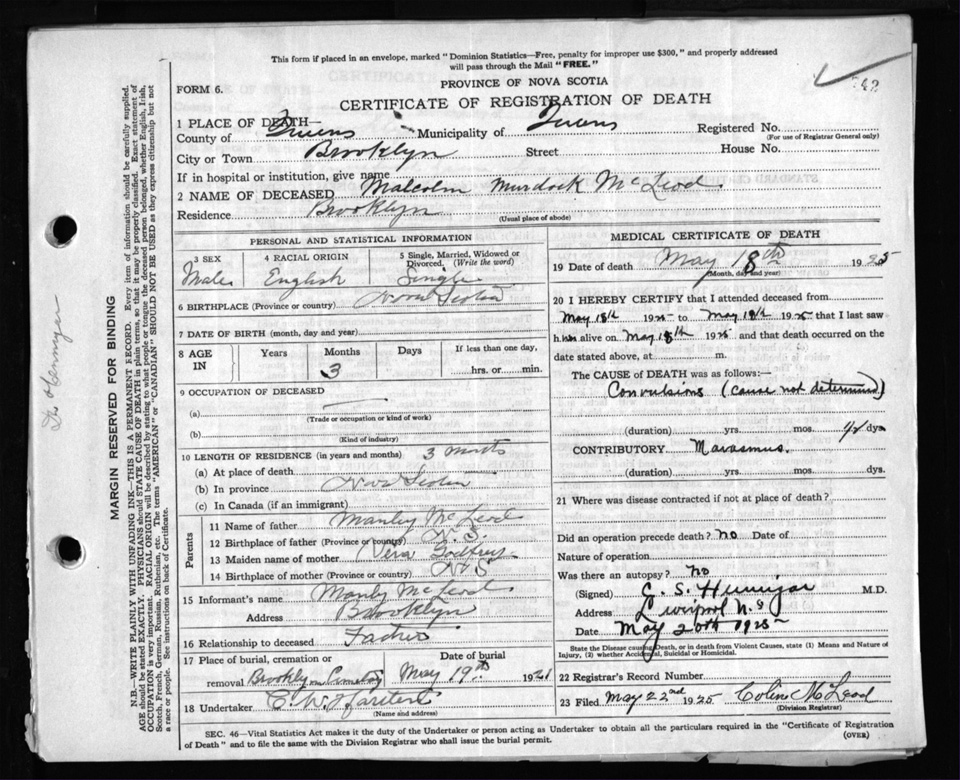 This form if placed in an envelope, marked "Dominion Statistics—Free, penalty for improper use $300," and properly addressed
will pass through the Mail "FREE."
PROVINCE OF NOVA SCOTIA
FORM 6.
CERTIFICATE OF REGISTRATION OF DEATH
1 PLACE OF DEATH—
County of Queens Municipality of Queens Registered No.
(For use of Registrar General only)
City or Town Brooklyn Street House No.
If in hospital or institution, give name
2 NAME OF DECEASED Malcolm Murdock McLeod
Residence Brooklyn
(Usual place of abode)
PERSONAL AND STATISTICAL INFORMATION
3 SEX 4 RACIAL ORIGIN 5 Single, Married, Widowed or Divorced. (Write the word)
Male English Single
6 BIRTHPLACE (Province or country) Nova Scotia
7 DATE OF BIRTH (month, day and year)
8 AGE IN Years Months Days If less than one day,
3 hrs. or min.
9 OCCUPATION OF DECEASED
(a)
(Trade or occupation or kind of work)
(b)
(Kind of industry)
10 LENGTH OF RESIDENCE (in years and months) 3 months
(a) At place of death
(b) In province Nova Scotia
(c) In Canada (if an immigrant)
Parents
11 Name of father Manley McLeod
12 Birthplace of father (Province or country) N.S.
13 Maiden name of mother Vera Godfrey
14 Birthplace of mother (Province or country) N S
15 Informant's name Manley McLeod
Address Brooklyn
16 Relationship to deceased Father
17 Place of burial, cremation or removal Date of burial
Brooklyn Cemetery May 19th 1921
18 Undertaker C. W.
(Name and address)
MEDICAL CERTIFICATE OF DEATH
19 Date of death May 18th 1925
(Month, day and year)
20 I HEREBY CERTIFY that I attended deceased from
May 18th 1925 to May 18th 1925 that I last saw
him alive on May 18th 1925 and that death occurred on the
date stated above, at m.
The CAUSE of DEATH was as follows:—
Convulsions (cause not determined)
(duration) yrs. mos. 1/2 dys.
CONTRIBUTORY Marasmus.
(duration) yrs. mos. dys.
21 Where was disease contracted if not at place of death?
Did an operation precede death? no Date of
Nature of operation
Was there an autopsy? no
(Signed) M.D.
Address Liverpool N.S
Date May 20th 1925
State the Disease causing Death, or in death from Violent Causes, state (1) Means and Nature of
Injury, (2) whether Accidental, Suicidal or Homicidal.
22 Registrar's Record Number
23 Filed May 22nd 1925 Colin McLeod
(Division Registrar)
SEC. 46—Vital Statistics Act makes it the duty of the Undertaker or person acting as Undertaker to obtain all the particulars required in the "Certificate of Registration
of Death" and to file the same with the Division Registrar who shall issue the burial permit.
(OVER)
MARGIN RESERVED FOR BINDING
N.B.—WRITE PLAINLY WITH UNFADING INK—THIS IS A PERMANENT RECORD. Every item of information should be carefully supplied.
AGE should be stated EXACTLY. PHYSICIANS should STATE CAUSE OF DEATH in plain terms, so that it may be properly classified. Exact statement of
OCCUPATION is very important. RACIAL ORIGIN will be described by stating to what people or tongue the deceased person belonged, whether English, Irish,
Scotch, French, German, Russian, Ruthenian, etc. The terms "AMERICAN" or "CANADIAN" SHOULD NOT BE USED as they express citizenship but not
a race or people. See instructions on back of Certificate.